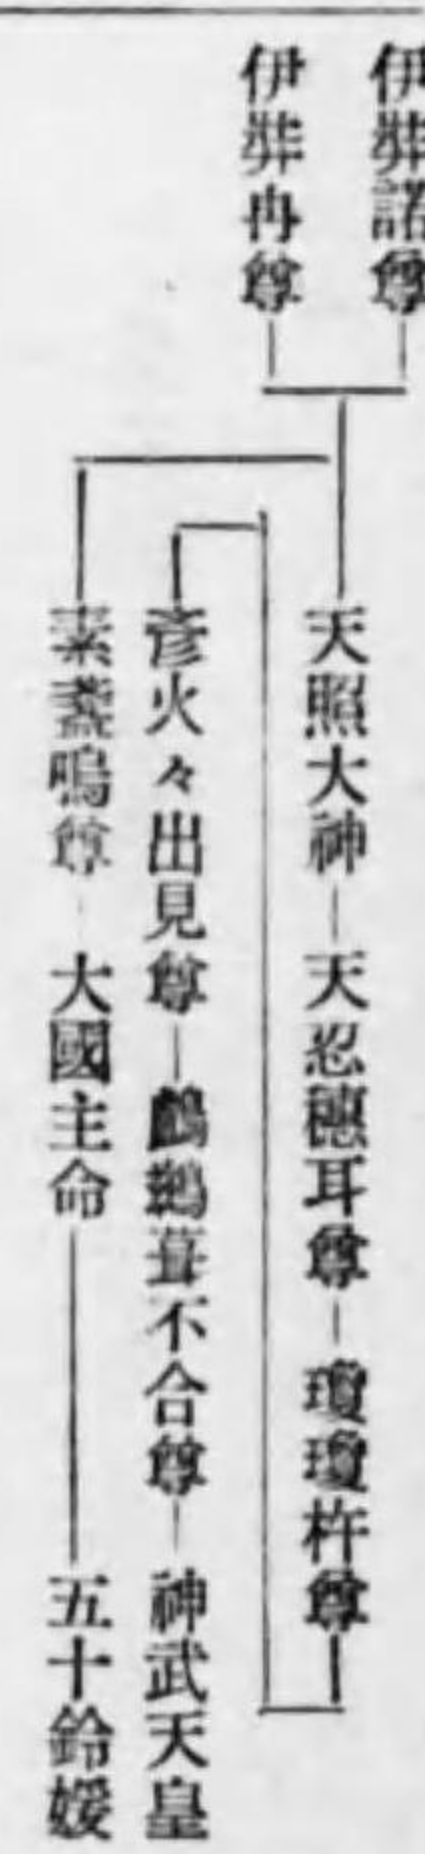 伊弉諾尊
伊弉再尊
天照大神―天忍穗耳尊―瓊瓊杵尊
彥火々出見尊―鸕鷀葺不合尊―神武天皇
素盞嗚尊―大國主命―五十鈴媛